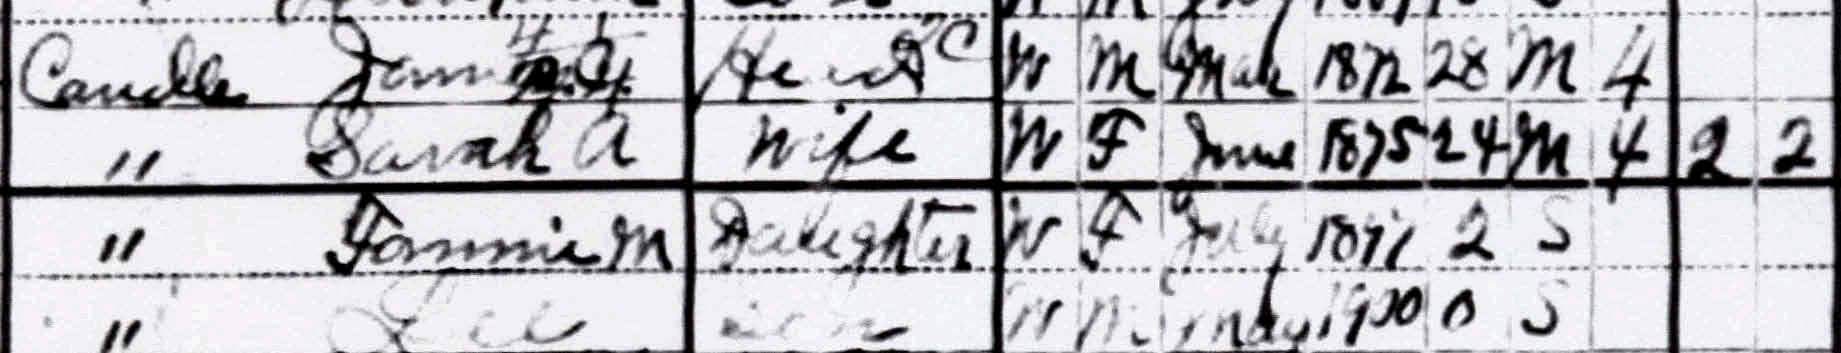 Caudle Jam Head W M Mar 1872 28 M 4
" Sarah A Wife W F June 1875 24 M 4 2 2
" Fannie M Daughter W F July 1897 2 S
" Lee Son W M May 1900 0 S